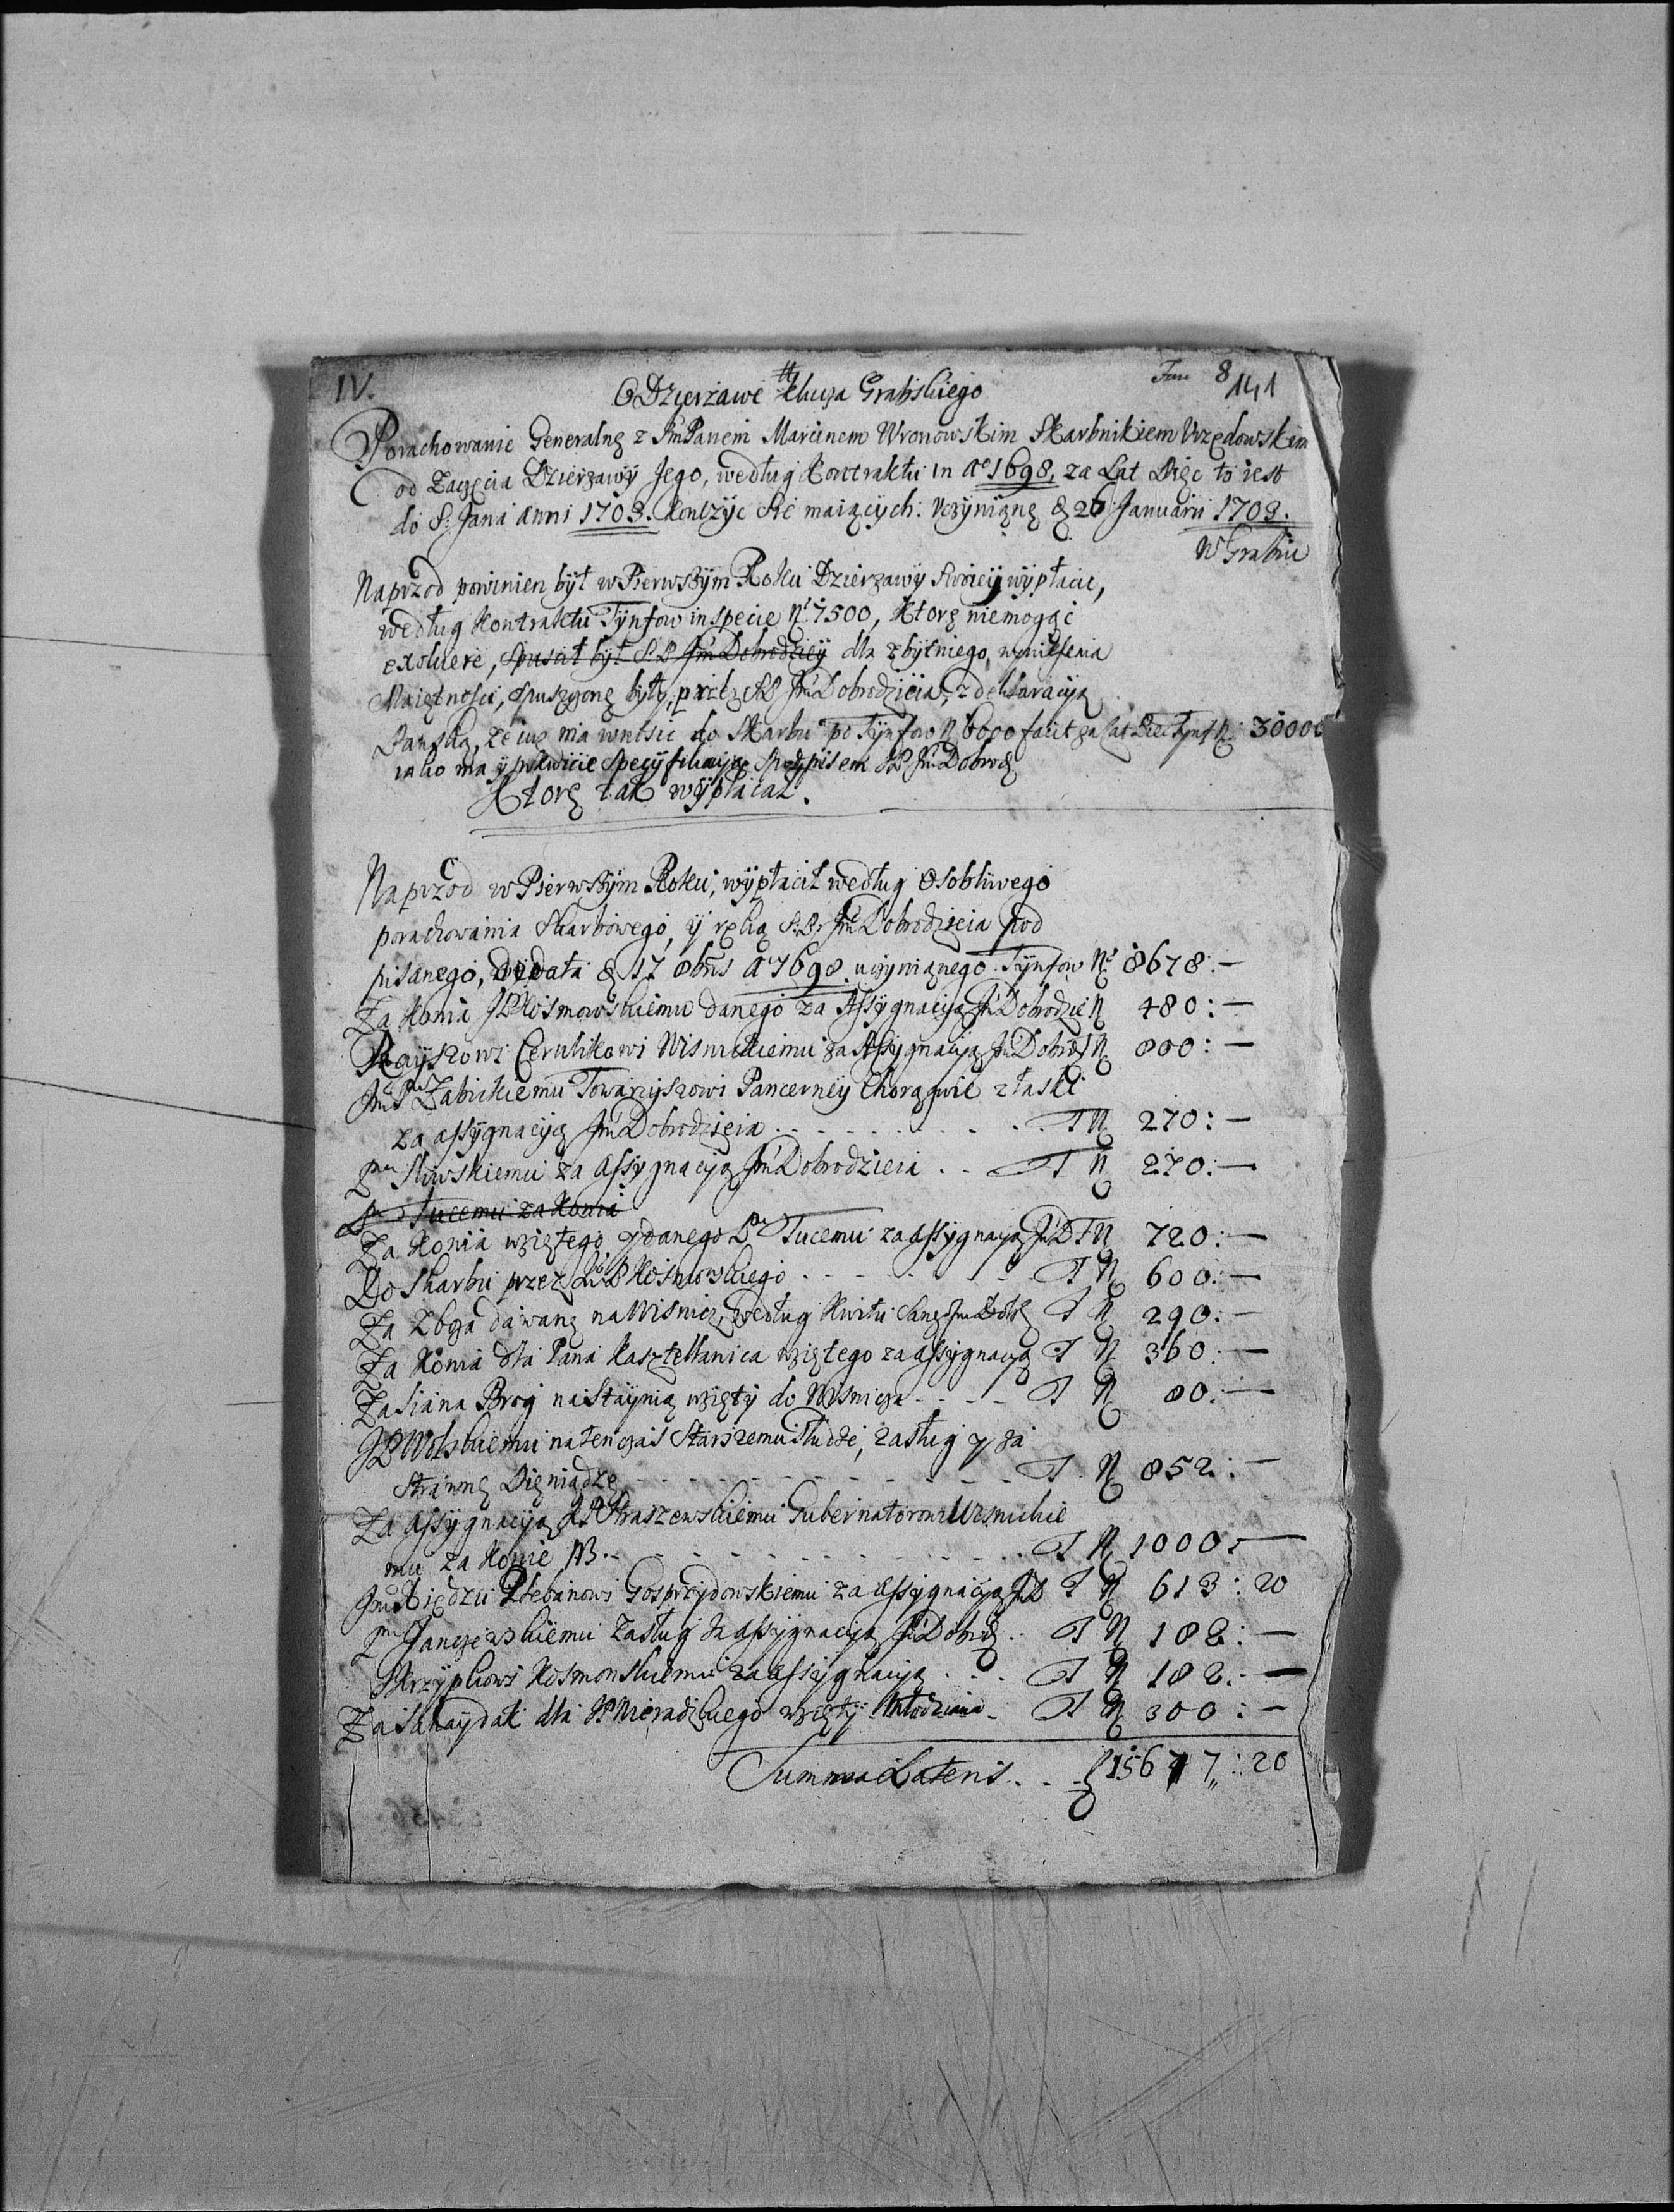 IV.
Fasc 8
141
O Dzierżawe klucza Grabskiego
Porachowanie Generalne z JmPanem Marcinem Wronowskim Skarbnikiem Urzędowskim
od Zaczęcia Dzierżawy Jego, według Kontraktu in Ao 1698, za Lat Pięc to iest
do S: Jana Anni 1703. Konczyc Się maiących. Uczynione d 26 Januarii 1703.
W Grabiu
Naprzod powinien był w Pierwszym Roku Dzierzawy Swoiey wypłacic,
według Kontraktu Tynfow in specie No 7500, Ktore niemogąc
exolvere, spuscił był S.P. Jm Dobrodziey dla zbytniego wyniszenia
Maiętnosci, spuszczone były, przez SP JmDobrodzieia, z deklaracyą
Panską, że iuż ma wnosic do Skarbu po Tynfow N 6000 facit za Lat Pięc Tynf N: 30000
iako ma y prawicie Specyfikacyą z podpisem SP Jm Dobrodz
Ktore tak wypłacał.
Naprzod w Pierwszym Roku, wypłacił według Osobliwego
porachowania Skarbowego, y ręką S:P: JmDobrodzieia pod
pisanego, data d 17 8bris Ao 1698 uczynionego Tynfow No 8678:—
Za Konia JP Kosmowskiemu danego za Assygnacyą JmDobrodzie N 480:—
Rayskowi Cerulikowi Wisnickiemu za Assygnacyą JmDobrdz N 800:—
JmP Zabickiemu Towarzyszowi Pancerney Chorągwie z łaski
za assygnacyą JmDobrodzieia . . . T N 270:—
Pnu Sliwskiemu za Assygnacyą JmDobrodzieia . . T N 270:—
Pu Tucemu za Konia
Za Konia wziętego y danego Pu Tucemu za assygnacyą JmD T N 720:—
Do Skarbu przez JmP Kosmowskiego . . . T N 600:—
Za Zboża dawane na Wisnicz, według Kwitu Sang JmDobdz T N 290:—
Za Konia dla Pana Kasztellanica wziętego za assygnacyą T N 360:—
Za siana Brog na Staynią wzięty do Wisnicza . . . T N 80:—
JP Wolskiemu natenczas Starszemu Słudze, zasług y za
Strawne Pieniądze . . . T N 852:—
Za Assygnacyą JP Straszewskiemu Gubernatorowi Wisnickie
mu za Konie N3 . . . T N 1000:—
Jm Xiędzu Plebanowi Gosprzydowskiemu za assygnacyą JmD T N 613:20
Pnu Janczewskiemu Zasług za assygnacyą JmDobrdz . . T N 182:—
Skrzypkowi Kosmonskiemu za assygnacyą . . . T N 182:—
Za Sahaydak dla JP Nieradzkiego wzięty Młodziana T N 300:—
Summa Lateris . . . 15677:20